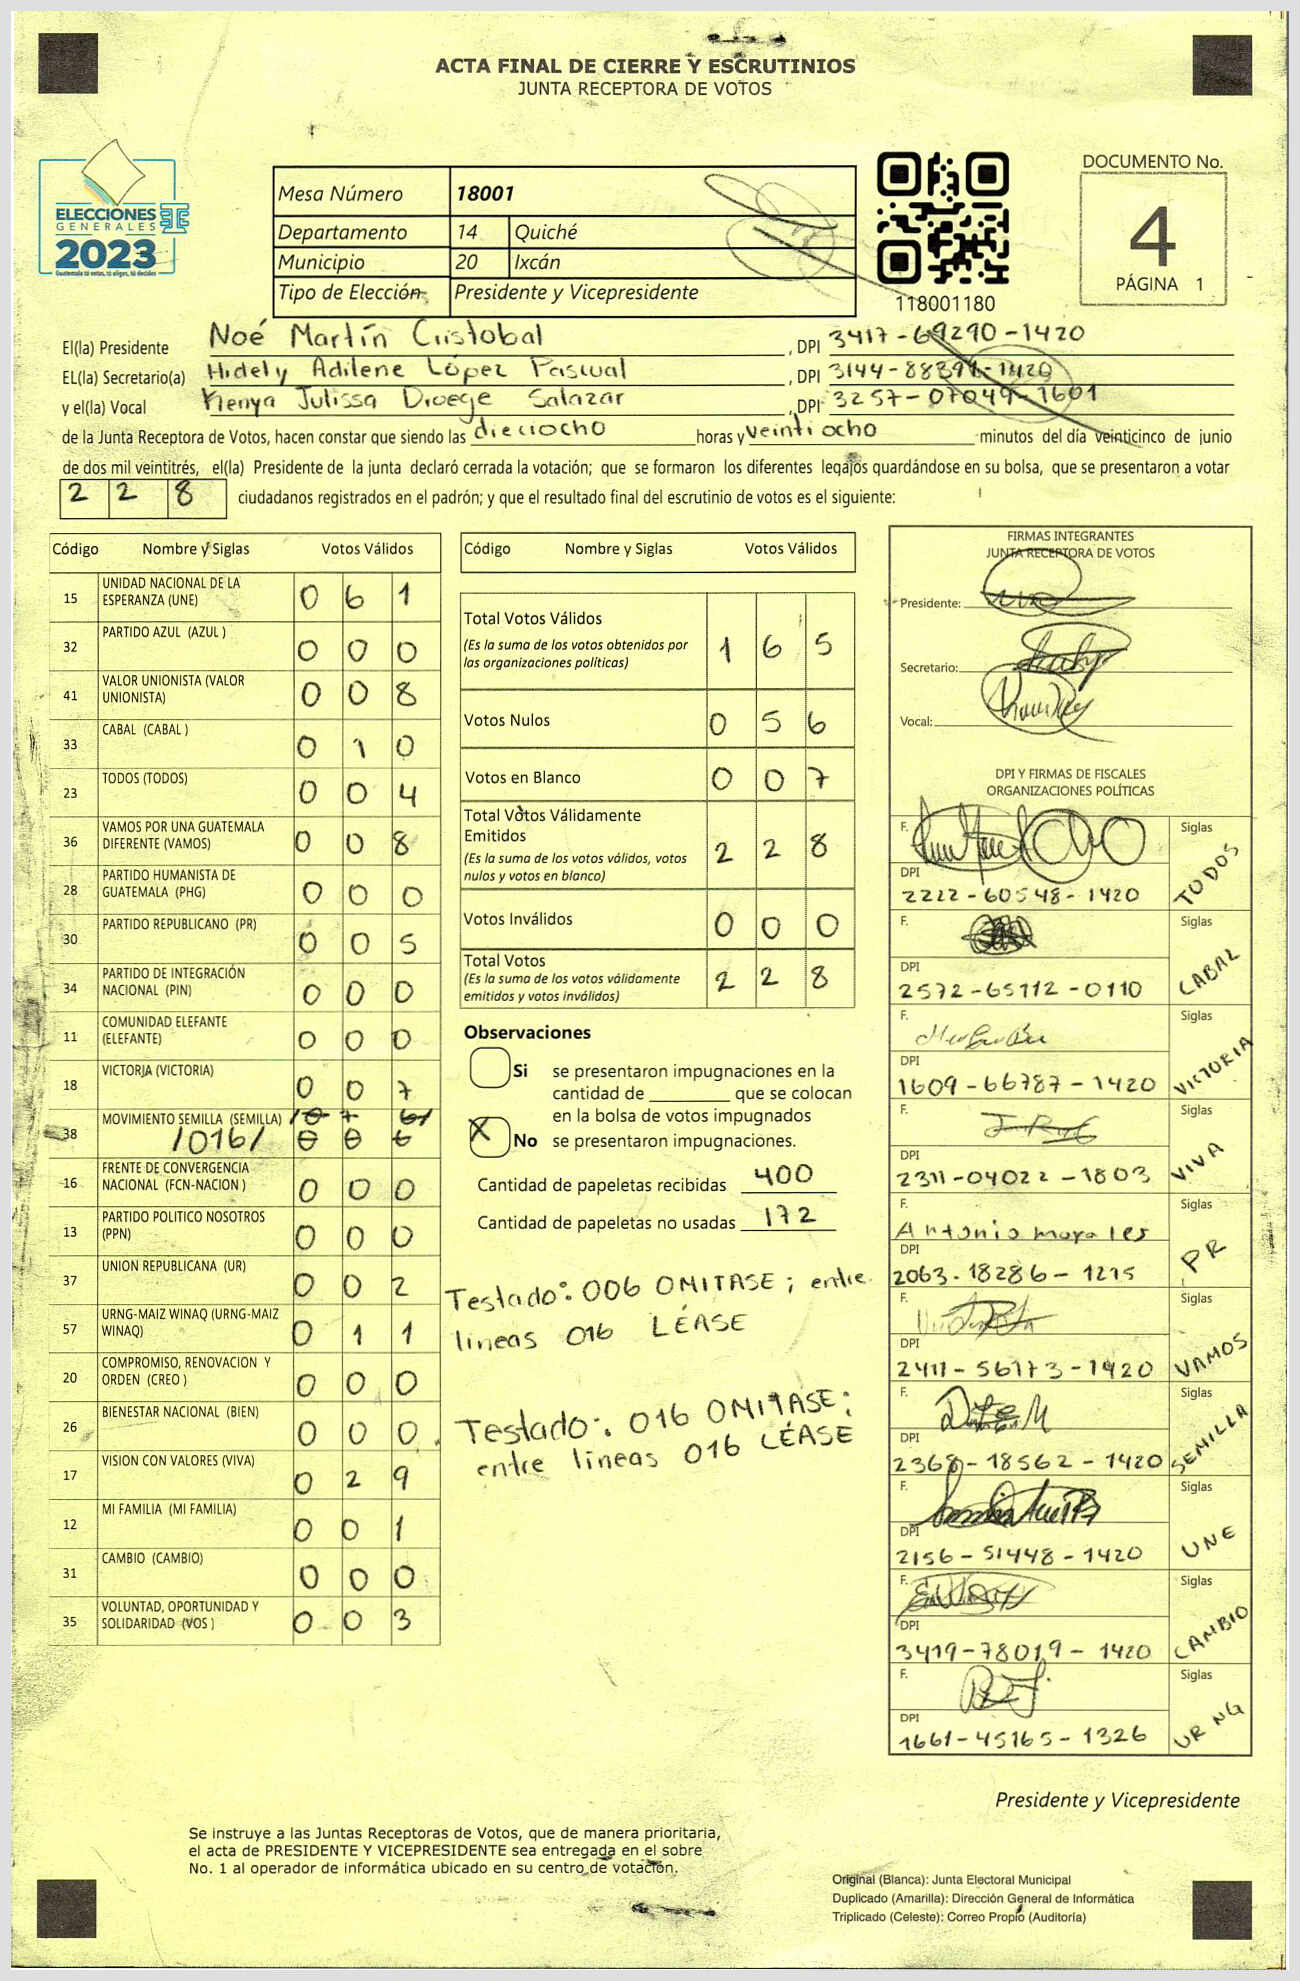 ACTA FINAL DE CIERRE Y ESCRUTINIOS
JUNTA RECEPTORA DE VOTOS
ELECCIONES
GENERALES
2023
Guatemala tú votas, tú eliges, tú decides
Mesa Número 18001
Departamento 14 Quiché
Municipio 20 Ixcán
Tipo de Elección Presidente y Vicepresidente
118001180
DOCUMENTO No.
4
PÁGINA 1
El(la) Presidente Noé Martín Cristobal , DPI 3417-69290-1420
EL(la) Secretario(a) Hidely Adilene López Pascual , DPI 3144-88391-1420
y el(la) Vocal Kenya Julissa Droege Salazar , DPI 3257-07049-1601
de la Junta Receptora de Votos, hacen constar que siendo las dieciocho horas y veintiocho minutos del día veinticinco de junio
de dos mil veintitrés, el(la) Presidente de la junta declaró cerrada la votación; que se formaron los diferentes legajos quardándose en su bolsa, que se presentaron a votar
2 2 8 ciudadanos registrados en el padrón; y que el resultado final del escrutinio de votos es el siguiente:
Código Nombre y Siglas Votos Válidos
15 UNIDAD NACIONAL DE LA
ESPERANZA (UNE) 0 6 1
32 PARTIDO AZUL (AZUL ) 0 0 0
41 VALOR UNIONISTA (VALOR
UNIONISTA) 0 0 8
33 CABAL (CABAL ) 0 1 0
23 TODOS (TODOS) 0 0 4
36 VAMOS POR UNA GUATEMALA
DIFERENTE (VAMOS) 0 0 8
28 PARTIDO HUMANISTA DE
GUATEMALA (PHG) 0 0 0
30 PARTIDO REPUBLICANO (PR) 0 0 5
34 PARTIDO DE INTEGRACIÓN
NACIONAL (PIN) 0 0 0
11 COMUNIDAD ELEFANTE
(ELEFANTE) 0 0 0
18 VICTORIA (VICTORIA) 0 0 7
38 MOVIMIENTO SEMILLA (SEMILLA)
/016/ 0 0 6
16 FRENTE DE CONVERGENCIA
NACIONAL (FCN-NACION ) 0 0 0
13 PARTIDO POLITICO NOSOTROS
(PPN) 0 0 0
37 UNION REPUBLICANA (UR) 0 0 2
57 URNG-MAIZ WINAQ (URNG-MAIZ
WINAQ) 0 1 1
20 COMPROMISO, RENOVACION Y
ORDEN (CREO ) 0 0 0
26 BIENESTAR NACIONAL (BIEN) 0 0 0
17 VISION CON VALORES (VIVA) 0 2 9
12 MI FAMILIA (MI FAMILIA) 0 0 1
31 CAMBIO (CAMBIO) 0 0 0
35 VOLUNTAD, OPORTUNIDAD Y
SOLIDARIDAD (VOS ) 0 0 3
Código Nombre y Siglas Votos Válidos
Total Votos Válidos
(Es la suma de los votos obtenidos por
las organizaciones políticas) 1 6 5
Votos Nulos 0 5 6
Votos en Blanco 0 0 7
Total Votos Válidamente
Emitidos
(Es la suma de los votos válidos, votos
nulos y votos en blanco) 2 2 8
Votos Inválidos 0 0 0
Total Votos
(Es la suma de los votos válidamente
emitidos y votos inválidos) 2 2 8
Observaciones
Si se presentaron impugnaciones en la
cantidad de ________ que se colocan
en la bolsa de votos impugnados
X No se presentaron impugnaciones.
Cantidad de papeletas recibidas 400
Cantidad de papeletas no usadas 172
Testado: 006 OMITASE; entre
lineas 016 LÉASE
Testado: 016 OMITASE;
entre lineas 016 LÉASE
FIRMAS INTEGRANTES
JUNTA RECEPTORA DE VOTOS
Presidente:
Secretario:
Vocal:
DPI Y FIRMAS DE FISCALES
ORGANIZACIONES POLÍTICAS
F. Siglas
DPI TODOS
2222-60548-1420
F. Siglas
DPI CABAL
2572-65112-0110
F. Siglas
DPI VICTORIA
1609-66787-1420
F. Siglas
DPI VIVA
2311-04022-1803
F. Siglas
Antonio morales
DPI PR
2063-18286-1215
F. Siglas
DPI VAMOS
2411-56173-1420
F. Siglas
DPI SEMILLA
2368-18562-1420
F. Siglas
DPI UNE
2156-51448-1420
F. Siglas
DPI CAMBIO
3419-78019-1420
F. Siglas
DPI URNG
1661-45165-1326
Presidente y Vicepresidente
Se instruye a las Juntas Receptoras de Votos, que de manera prioritaria,
el acta de PRESIDENTE Y VICEPRESIDENTE sea entregada en el sobre
No. 1 al operador de informática ubicado en su centro de votación.
Original (Blanca): Junta Electoral Municipal
Duplicado (Amarilla): Dirección General de Informática
Triplicado (Celeste): Correo Propio (Auditoría)